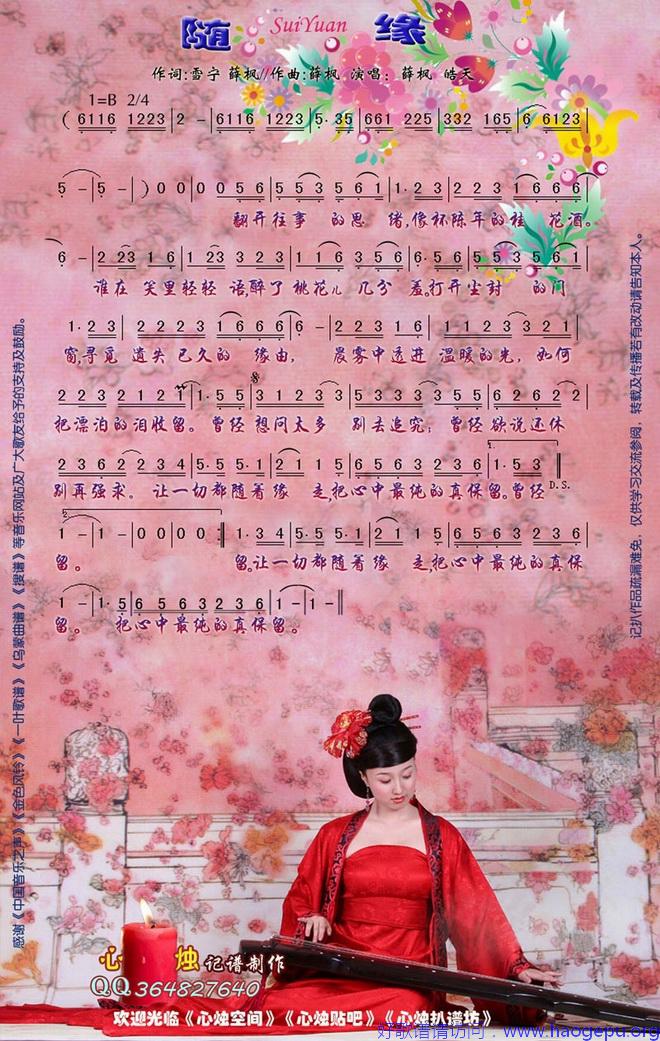 随 缘
SuiYuan
作词:雪宁 薛枫//作曲:薛枫 演唱: 薛枫 皓天
1=B 2/4
( 6116 1223 | 2 - | 6116 1223 | 5· 35 | 661 225 | 332 165 | 6 6123 |
5 - | 5 - | ) 0 0 | 0 0 5 6 | 5 5 3 5 6 1 | 1· 2 3 | 2 2 3 1 6 6 6 |
翻开往事 的思 绪,像杯陈年的桂 花酒。
6 - | 2 23 1 6 | 1 23 3 2 3 | 1 1 6 3 5 6 | 6· 5 6 | 5 5 3 5 6 1 |
谁在 笑里轻轻 语,醉了 桃花儿 几分 羞。打开尘封 的门
1· 2 3 | 2 2 3 1 2 3 | 1 6 6 6 | 6 - | 2 2 3 1 6 | 1 1 2 3 3 2 3 |
窗,寻觅 遗失 已久的 缘由, 晨雾中透进 温暖的光, 如何
把漂泊的泪收留。曾经 想问太多 别去追究; 曾经 欲说还休
2 3 6 2 2 3 4 | 5·5 5·1 | 2 1 1 5 | 6 5 6 3 2 3 6 | 1· 5 3 ‖
1.
D.S.
别再强求。 让一切都随着缘 走,把心中最纯的真保留。曾经
2.
1 - | 1 - | 0 0 0 0 :‖ 1· 3 4 | 5·5 5·1 | 2 1 1 5 | 6 5 6 3 2 3 6 |
留。 留。让一切都随着缘 走,把心中最纯的真保
1 - | 1· 5 | 6 5 6 3 2 3 6 | 1 - | 1 - ‖
留。 把心中最纯的真保留。
感谢《中国音乐之声》《金色风铃》《一叶歌谱》《乌蒙曲谱》《搜谱》等音乐网站及广大歌友给予的支持及鼓励。
记扒作品疏漏难免,仅供学习交流参阅,转载及传播若有改动请告知本人。
心 烛 记谱制作
QQ 364827640
欢迎光临《心烛空间》《心烛贴吧》《心烛扒谱坊》
好歌谱请访问:www.haogepu.org